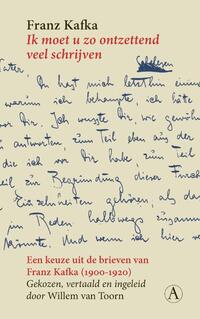 Franz Kafka
Ik moet u zo ontzettend
veel schrijven
Schelesen
Vater
Du hast mich letzthin einmal
warum ich behaupte, ich hätte
vor Dir. Ich wusste Dir, wie gewöh
antworten, zum Teil eben aus der
die ich vor Dir habe, zum Teil
zur Begründung dieser Furcht
Einzelnheiten gehören, als da
im Reden halbwegs zusamm
könnte. Und wenn ich hier
Een keuze uit de brieven van
Franz Kafka (1900-1920)
Gekozen, vertaald en ingeleid
door Willem van Toorn
A